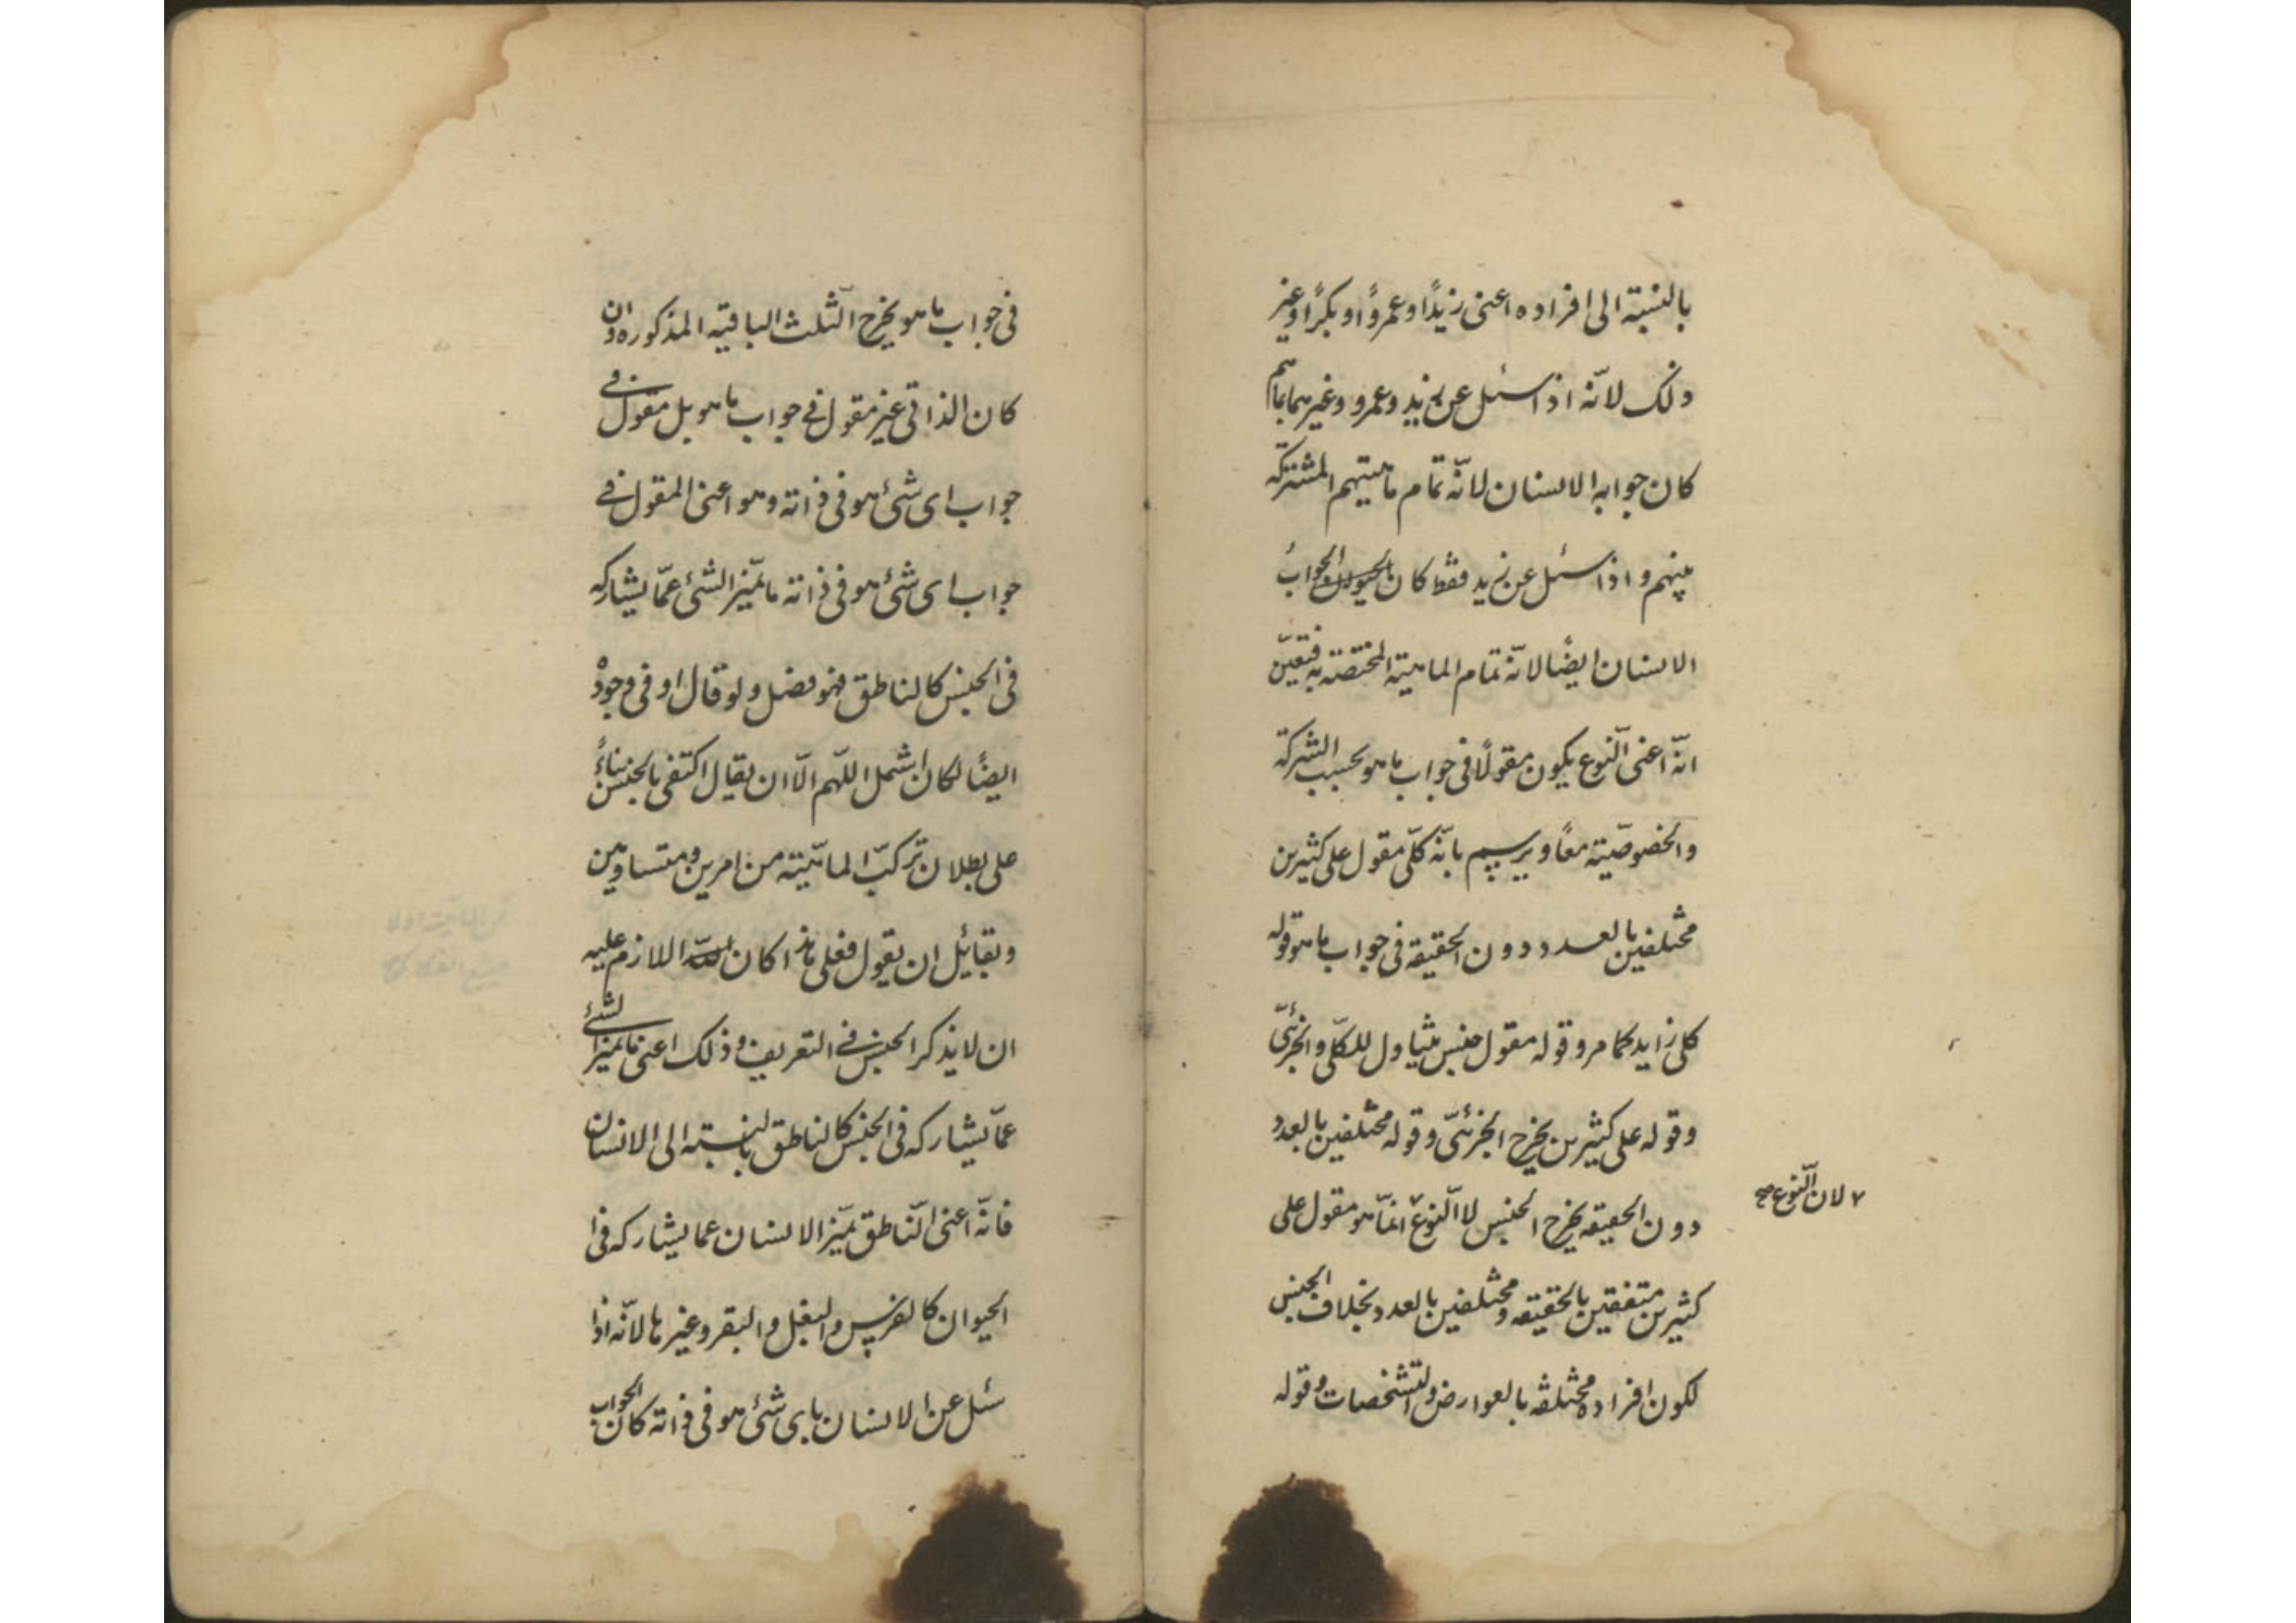 بالنسبة الى افراده اعنى زيدًا وعمروًا وبكرًا وغير
ذلك لانّه اذا سئل عن زيد وعمرو وغيرهما بما هم
كان جوابه الانسان لانّه تمام ماهيتهم المشتركة
بينهم واذا سئل عن زيد فقط كان الجوابُ
الانسان ايضًا لانّه تمام الماهية المختصّة به فتعيّن
انّه اعنى النّوع يكون مقولًا فى جواب ما هو بحسب الشركة
والخصوصيّة معًا ويرسم بانّه كلّى مقول على كثيرين
مختلفين بالعدد دون الحقيقة فى جواب ما هو قوله
كلى زايد كما مر وقوله مقول جنس يتناول للكلّى والجزئىّ
وقوله على كثيرين يخرج الجزئىّ وقوله مختلفين بالعدد
دون الحقيقه يخرج الجنس لا النّوع ٧ انمّا هو مقول على
٧ لان النّوع صح
كثيرين متفقين بالحقيقه ومختلفين بالعدد بخلاف الجنس
لكون افراده مختلفه بالعوارض والتشخصات وقوله
فى جواب ما هو يخرج الثّلث الباقيه المذكوره وان
كان الذاتى غير مقول فى جواب ما هو بل مقول فى
جواب اى شئ هو فى ذاته وهو اعنى المقول فى
جواب اى شئ هو فى ذاته ما يميّز الشئ عمّا يشاركه
فى الجنس كالناطق فهو فصل ولو قال او فى وجودٍ
ايضًا لكان اشمل اللهم الّا ان يقال اكتفى بالجنس بناءً
على بطلان تركّب الماهيّة من امرين متساويين
ولقائل ان يقول فعلى هذا كان اللازم عليه
ان لا يذكر الجنس فى التعريف وذلك اعنى ما يميز الشئ
عمّا يشاركه فى الجنس كالناطق بالنسبته الى الانسان
فانّه اعنى النّاطق يميّز الانسان عما يشاركه فى
الحيوان كالفرس والبغل والبقر وغيرها لانّه اذا
سئل عن الانسان باى شئ هو فى ذاته كان الجواب